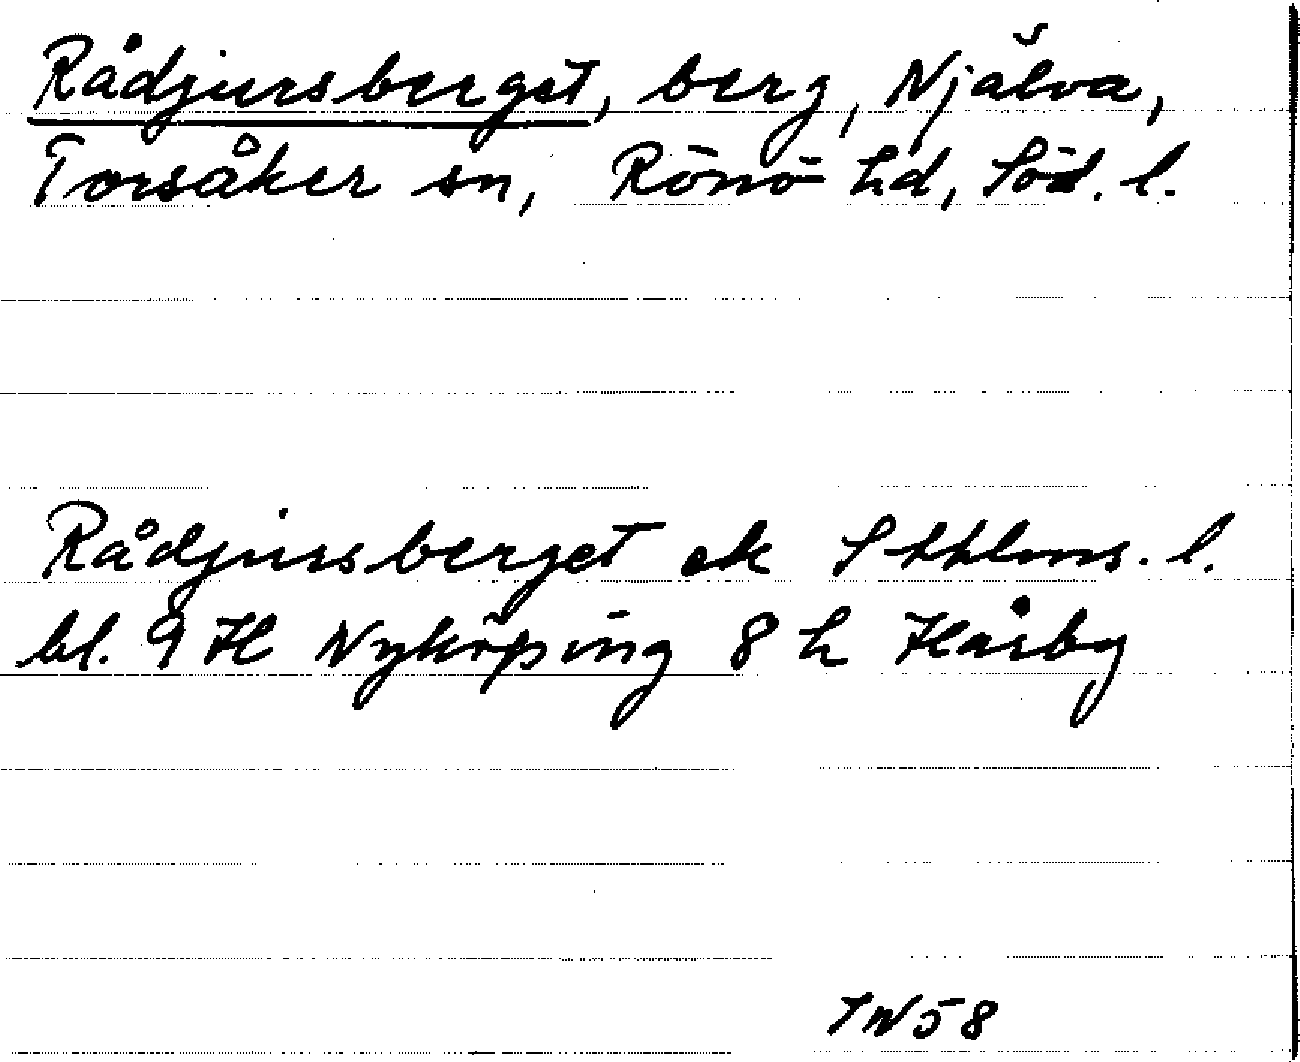 Rådjursberget, berg, Njälva,
Torsåker sn, Rönö hd, Söd. l.
Rådjursberget ek Sthlms. l.
bl. 9 H Nyköping 8 h Kårby
TN58